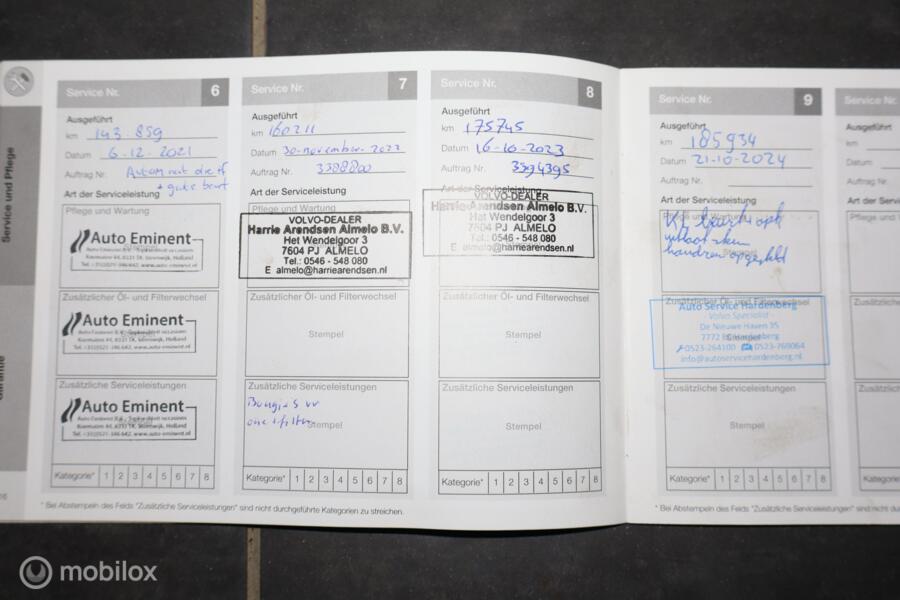 Service und Pflege
Service Nr. 6
Ausgeführt
km 143.859
Datum 6-12.2021
Auftrag Nr.
Art der Serviceleistung
Pflege und Wartung
Auto Eminent
Zusätzlicher Öl- und Filterwechsel
Auto Eminent
Zusätzliche Serviceleistungen
Auto Eminent
Kategorie* 1 2 3 4 5 6 7 8
Service Nr. 7
Ausgeführt
km 160211
Datum 30-november-2022
Auftrag Nr. 3388800
Art der Serviceleistung
Pflege und Wartung
VOLVO-DEALER
Harrie Arendsen Almelo B.V.
Het Wendelgoor 3
7604 PJ ALMELO
Tel.: 0546 - 548 080
E almelo@harriearendsen.nl
Zusätzlicher Öl- und Filterwechsel
Stempel
Zusätzliche Serviceleistungen
Stempel
Kategorie* 1 2 3 4 5 6 7 8
Service Nr. 8
Ausgeführt
km 175745
Datum 16-10-2023
Auftrag Nr. 3394395
Art der Serviceleistung
VOLVO-DEALER
Harrie Arendsen Almelo B.V.
Het Wendelgoor 3
7604 PJ ALMELO
Tel.: 0546 - 548 080
E almelo@harriearendsen.nl
Zusätzlicher Öl- und Filterwechsel
Stempel
Zusätzliche Serviceleistungen
Stempel
Kategorie* 1 2 3 4 5 6 7 8
* Bei Abstempeln des Feids "Zusätzliche Serviceleistungen" sind nicht durchgeführte Kategorien zu streichen.
Service Nr. 9
Ausgeführt
km 185934
Datum 21-10-2024
Auftrag Nr.
Art der Serviceleistung
Pflege und Wartung
Zusätzlicher Öl- und Filterwechsel
Auto Service Hardenberg
- Volvo Specialist -
De Nieuwe Haven 35
Hardenberg
0523-264100 0523-769064
info@autoservicehardenberg.nl
Zusätzliche Serviceleistungen
Stempel
Kategorie* 1 2 3 4 5 6 7 8
* Bei Abstempeln des Felds "Zusätzliche Serviceleistungen" sind nicht
Service Nr.
Ausgeführt
km
Datum
Auftrag Nr.
Art der
mobilox